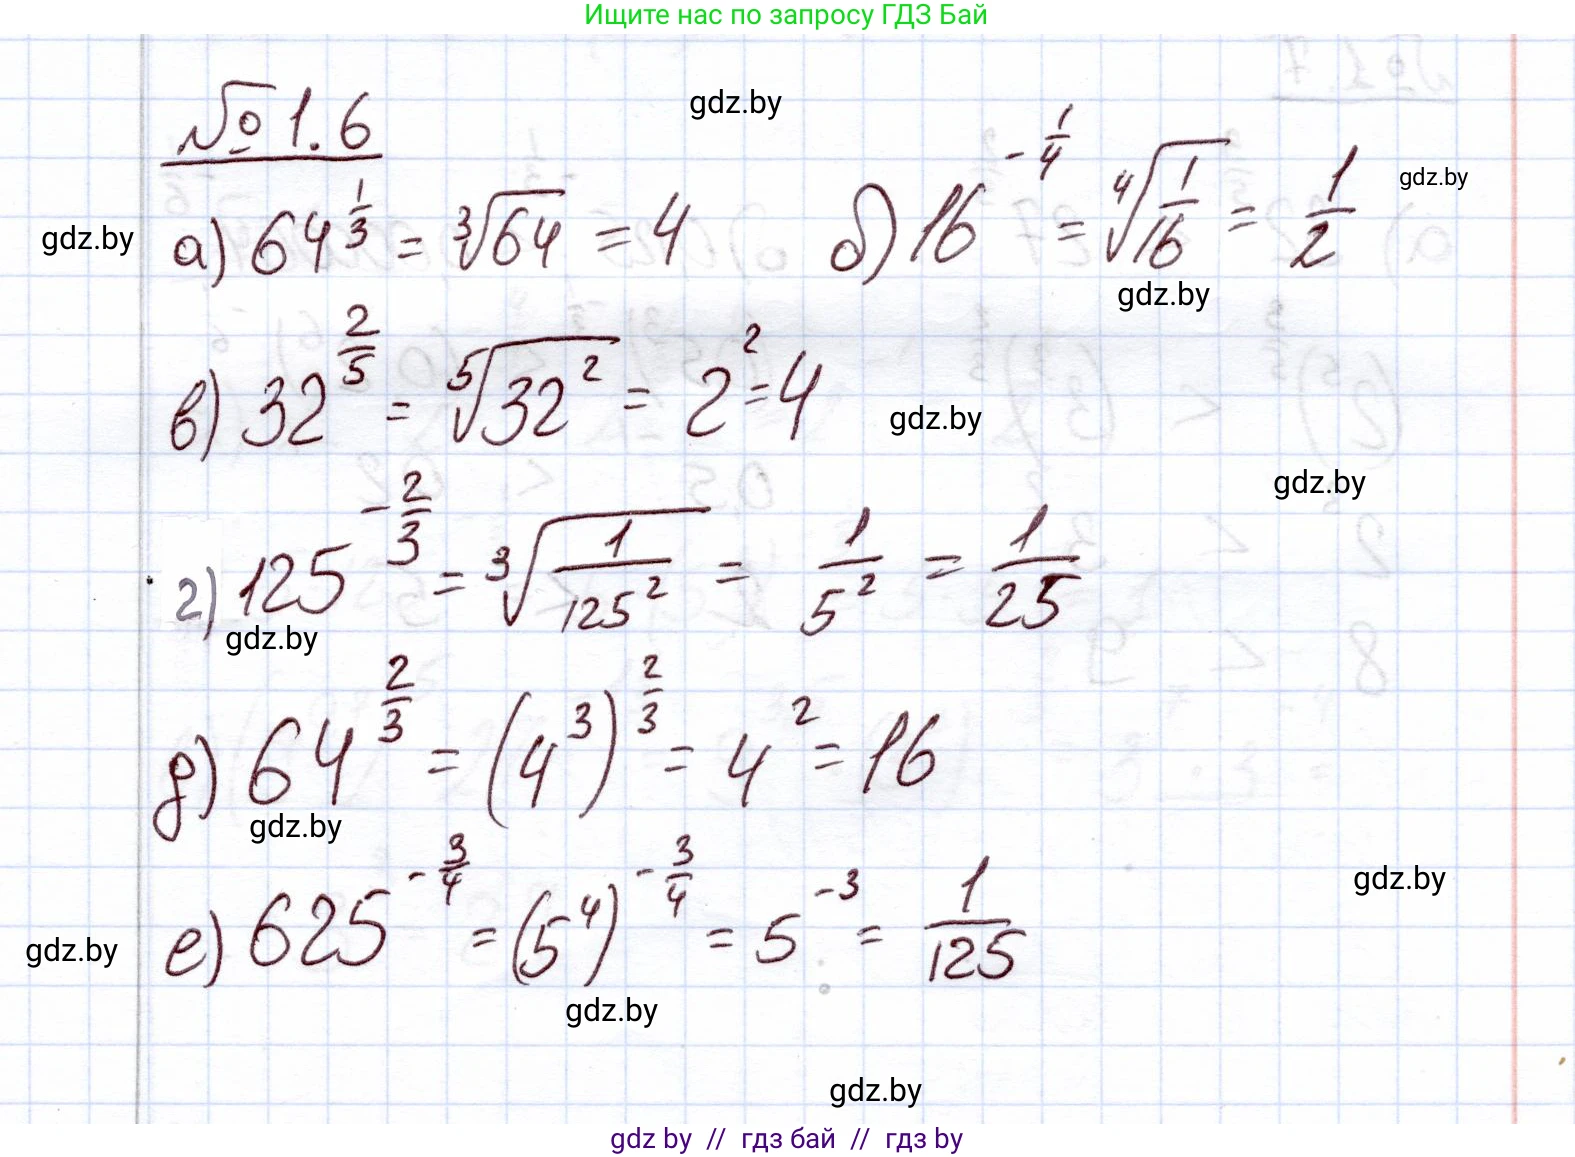 Ищите нас по запросу ГДЗ Бай
№ 1.6
gdz.by
а) 64^{1/3} = ∛64 = 4 б) 16^{-1/4} = ⁴√(1/16) = 1/2
gdz.by
gdz.by
gdz.by
в) 32^{2/5} = ⁵√(32²) = 2² = 4
gdz.by
gdz.by
г) 125^{-2/3} = ³√(1/125²) = 1/5² = 1/25
gdz.by
д) 64^{2/3} = (4³)^{2/3} = 4² = 16
gdz.by
gdz.by
е) 625^{-3/4} = (5⁴)^{-3/4} = 5^{-3} = 1/125
gdz.by
gdz.by
gdz.by
gdz by // гдз бай // гдз by